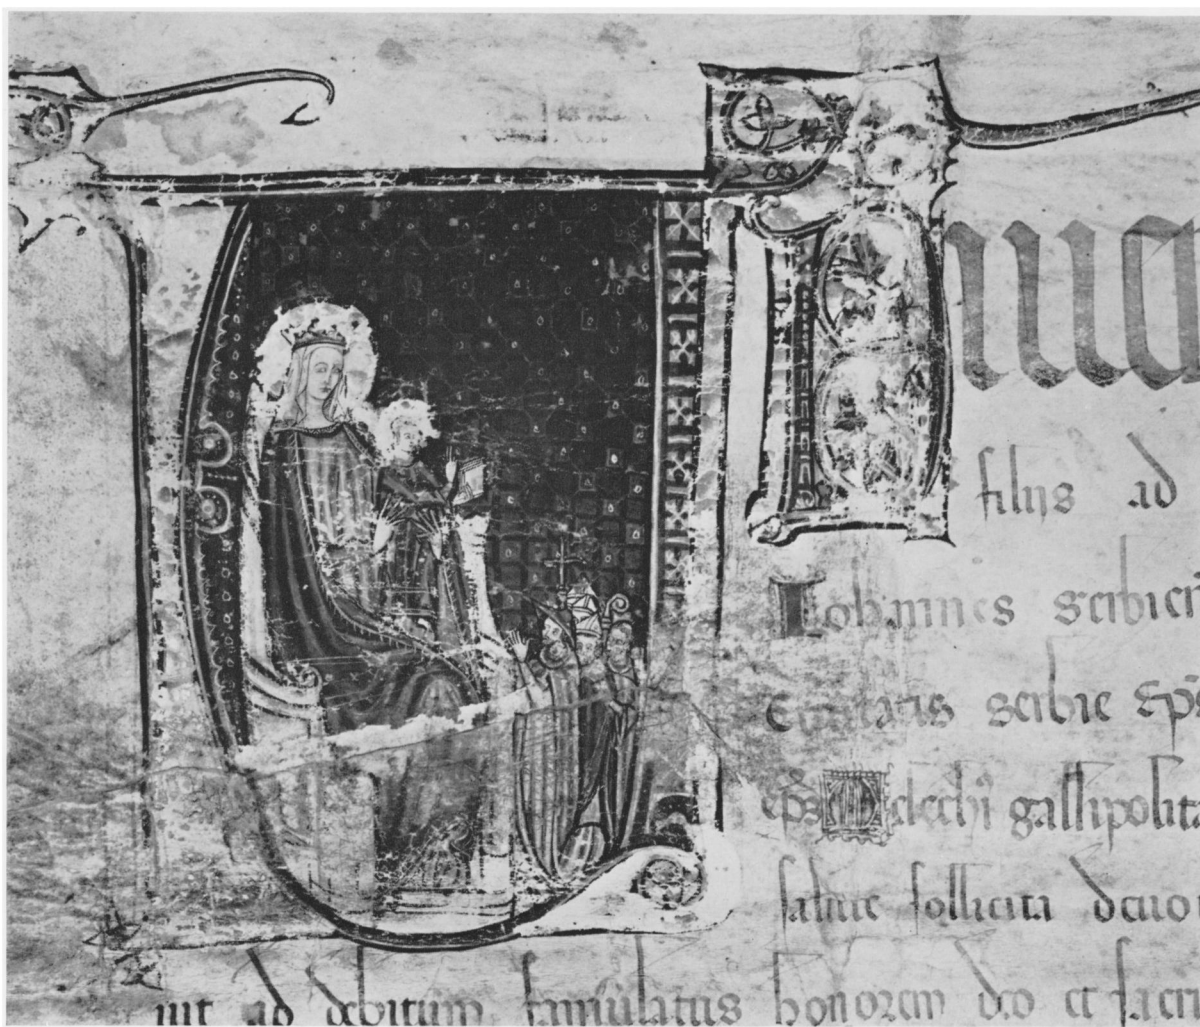 filijs ad
Iohannes serbien
Ciuitatis serbie Ep̄
ep̄s Melechi gallipolita
salute sollicita deuo
uit ad debitum famulatus honorem deo et sacr